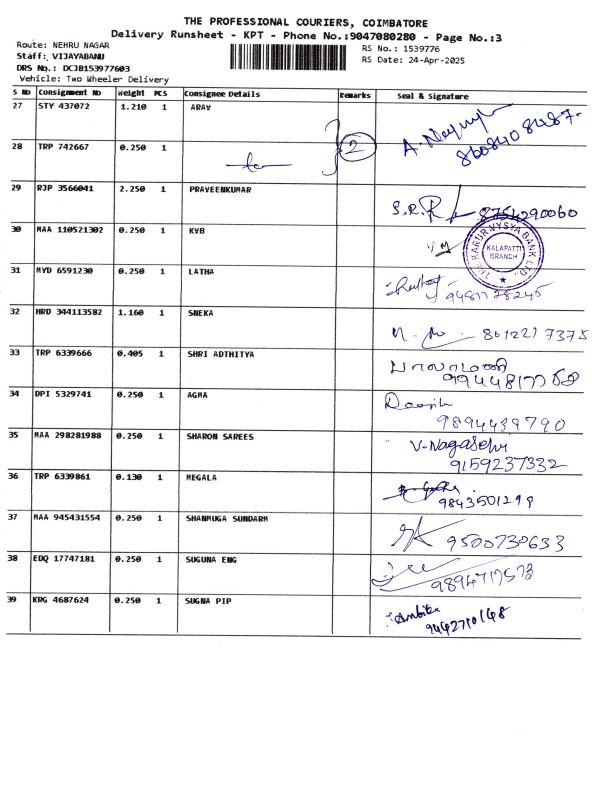 THE PROFESSIONAL COURIERS, COIMBATORE
Delivery Runsheet - KPT - Phone No.:9047080280 - Page No.:3
Route: NEHRU NAGAR
RS No.: 1539776
Staff: VIJAYABANU
RS Date: 24-Apr-2025
DRS No.: DCJB153977603
Vehicle: Two Wheeler Delivery
S No Consignment No Weight PCS Consignee Details Remarks Seal & Signature
27 STY 437072 1.210 1 ARAV
28 TRP 742667 0.250 1 2
29 RJP 3566041 2.250 1 PRAVEENKUMAR S.R. 8754290060
30 MAA 110521302 0.250 1 KVB
THE KARUR VYSYA BANK LTD.
KALAPATTI
BRANCH
31 MYD 6591230 0.250 1 LATHA
32 HRD 344113582 1.160 1 SNEKA 8012217375
33 TRP 6339666 0.405 1 SHRI ADTHITYA பாலாமணி
34 DPI 5329741 0.250 1 AGMA
9894439790
35 MAA 298281988 0.250 1 SHARON SAREES V-Nagaselvi
9159237332
36 TRP 6339861 0.130 1 MEGALA
9843501299
37 MAA 945431554 0.250 1 SHANMUGA SUNDARM 9500730633
38 EDQ 17747181 0.250 1 SUGUNA ENG
39 KRG 4687624 0.250 1 SUGNA PIP Ambika
9442710148